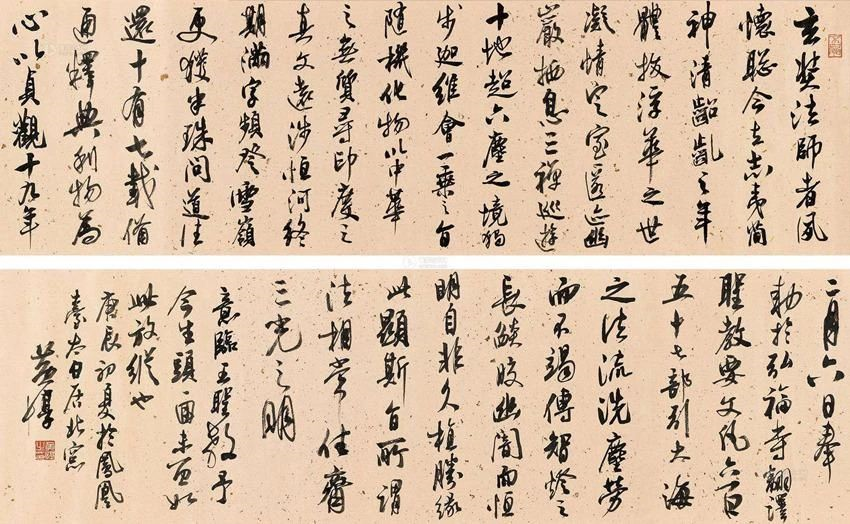 玄奘法師者夙
懷聡令立志夷簡
神清齠齔之年
體拔浮華之世
凝情定室匿迹幽
巖栖息三禪巡遊
十地超六塵之境獨
步迦維會一乘之旨
隨機化物以中華
之無質尋印度之
真文遠涉恒河終
期滿字頻登雪嶺
更獲半珠問道法
還十有七載備
通釋典利物為
心以貞觀十九年
二月六日奉
勅於弘福寺翻譯
聖教要文凡六百
五十七部引大海
之法流洗塵勞
而不竭傳智燈之
長焰皎幽闇而恒
明自非久植勝緣
顯斯旨所謂
法相常住齊
三光之明
意臨王聖教予
今生頭一回未如
此放縱也
庚辰初夏於鳳凰
臺太白居北窗
黃惇